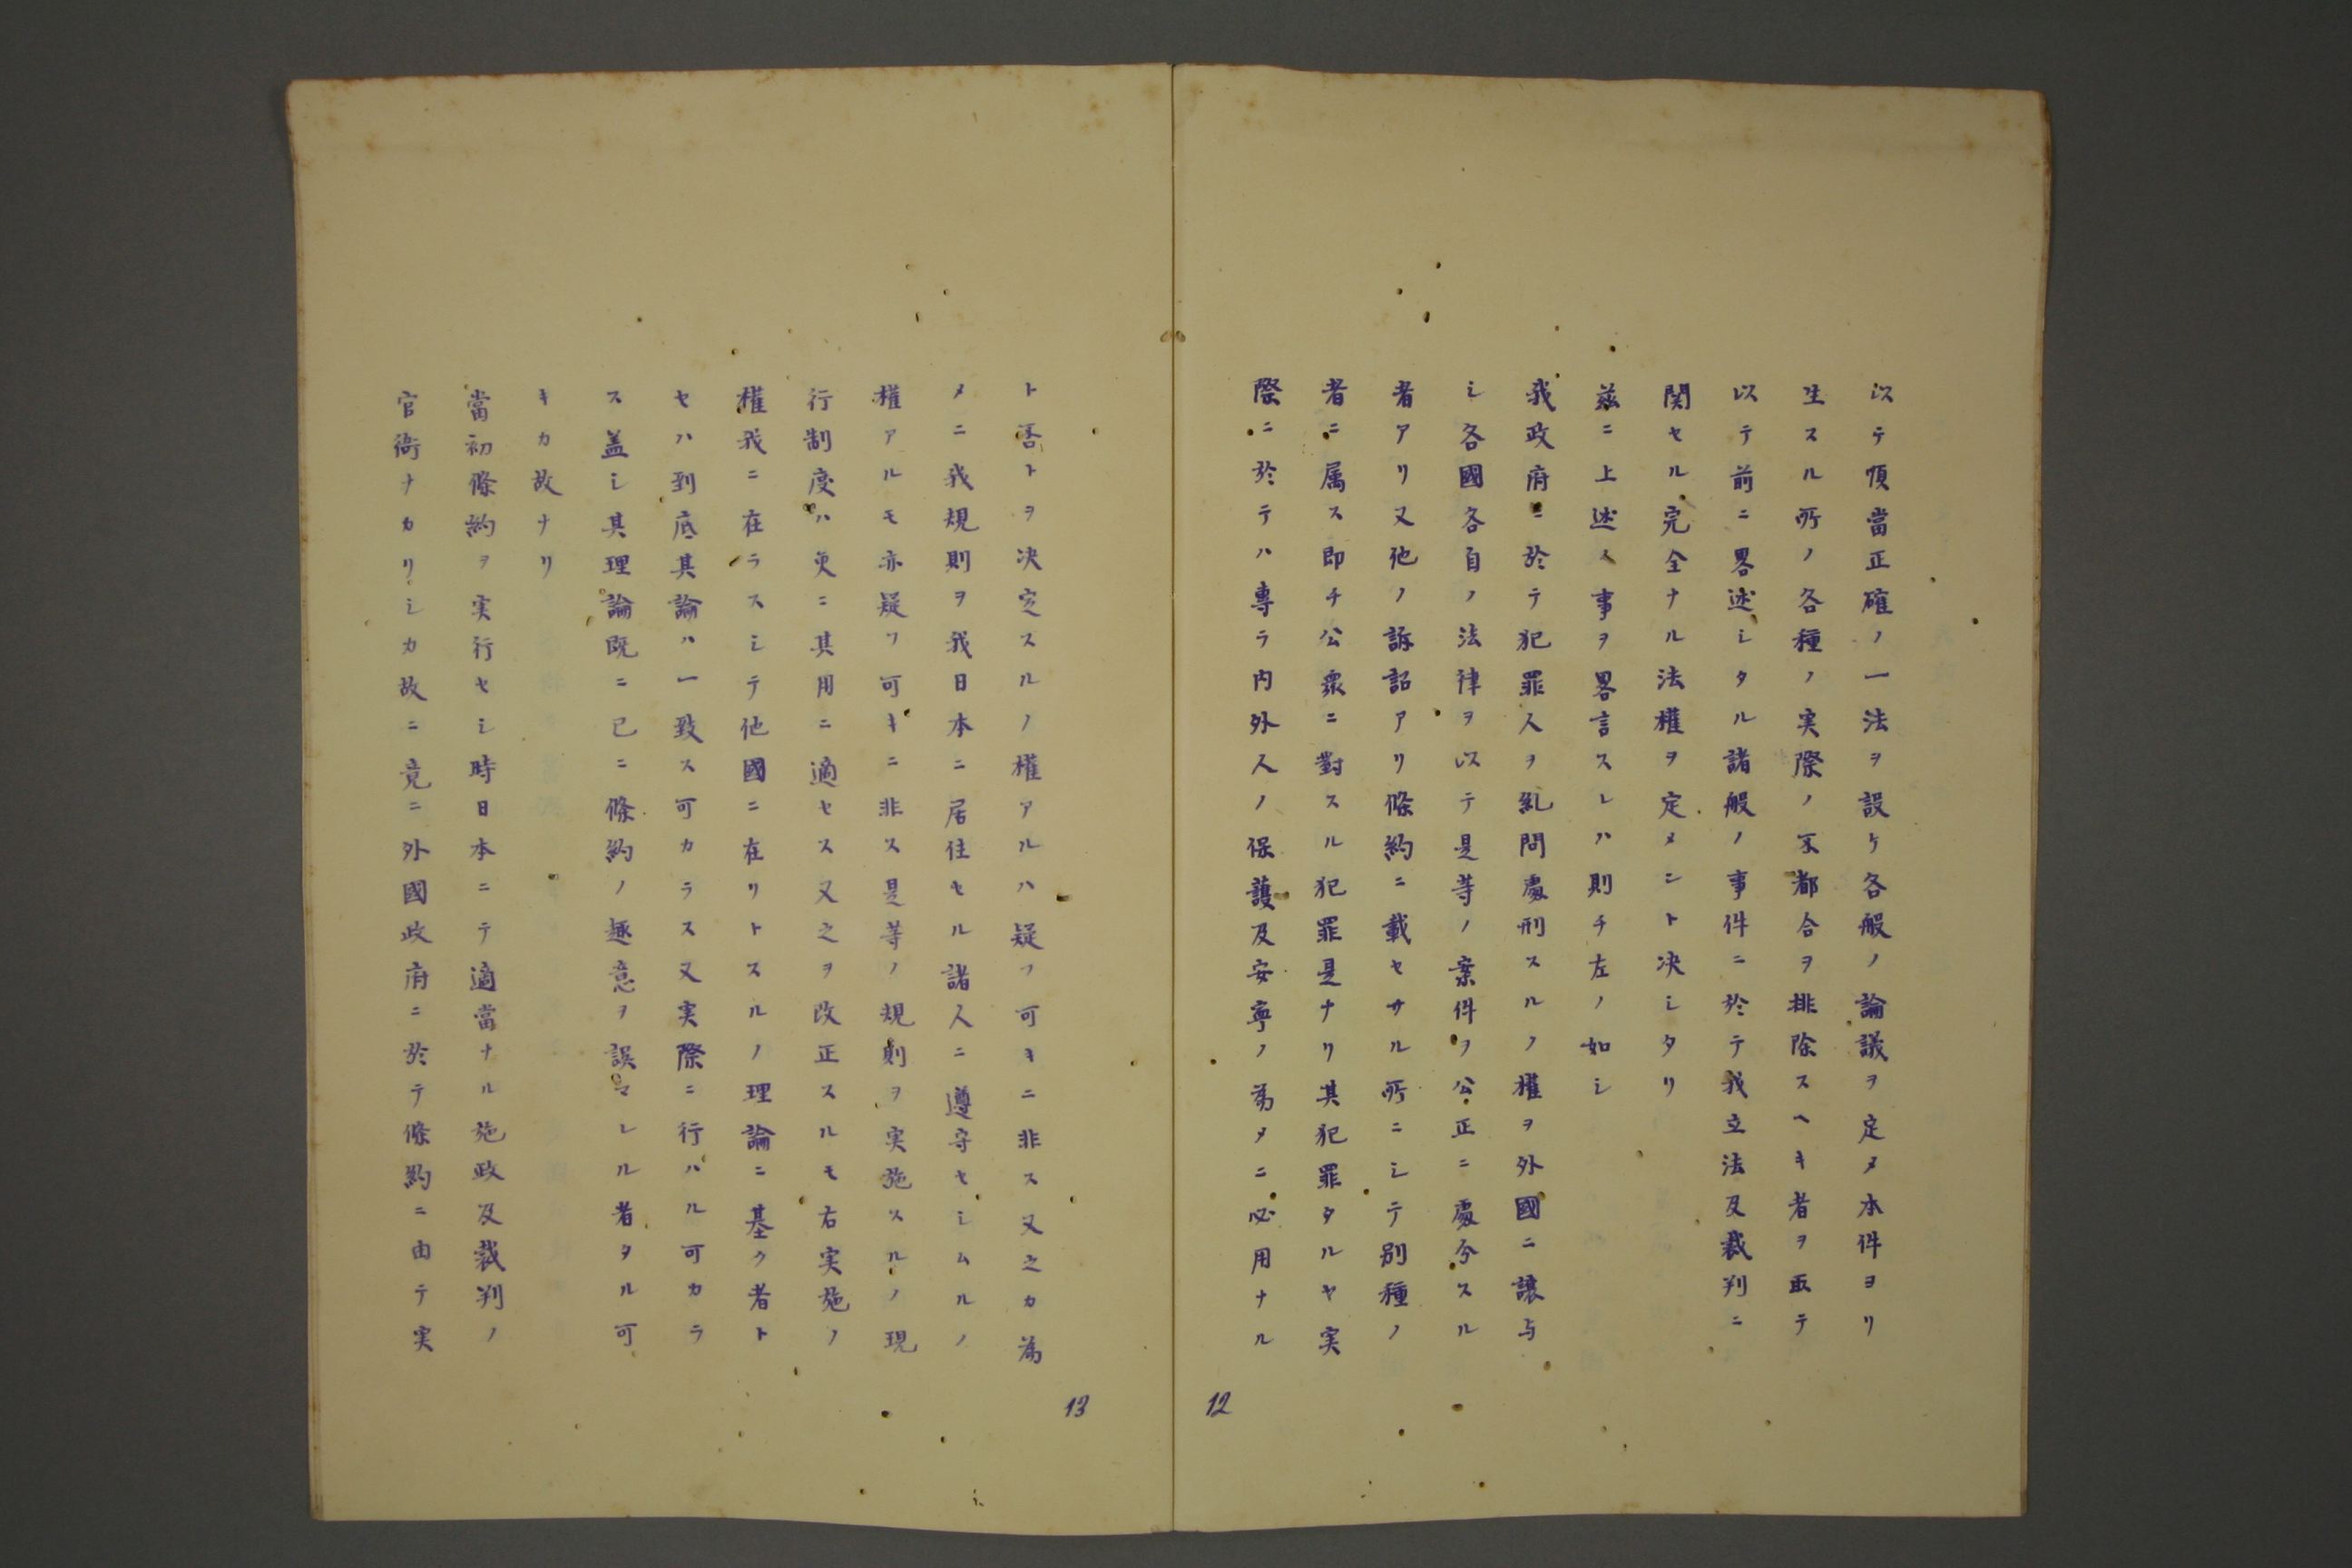 以テ順當正確ノ一法ヲ設ケ各般ノ論議ヲ定メ本件ヨリ
生スル所ノ各種ノ実際ノ不都合ヲ排除スヘキ者ヲ取テ
以テ前ニ畧述シタル諸般ノ事件ニ於テ我立法及裁判ニ
関セル完全ナル法権ヲ定メント决シタリ
茲ニ上述ノ事ヲ畧言スレハ則チ左ノ如シ
我政府ニ於テ犯罪人ヲ糺問處刑スルノ權ヲ外國ニ譲与
シ各國各自ノ法律ヲ以テ是等ノ案件ヲ公正ニ處分スル
者アリ又他ノ訴詔アリ條約ニ載セサル所ニシテ別種ノ
者ニ属ス即チ公衆ニ對スル犯罪是ナリ其犯罪タルヤ実
際ニ於テハ專ラ内外人ノ保護及安寧ノ為メニ必用ナル
12
ト否トヲ决定スルノ權アルハ疑フ可キニ非ス又之カ為
メニ我規則ヲ我日本ニ居住セル諸人ニ遵守セシムルノ
權アルモ亦疑フ可キニ非ス是等ノ規則ヲ実施スルノ現
行制度ハ更ニ其用ニ適セス又之ヲ改正スルモ右実施ノ
權我ニ在ラスシテ他國ニ在リトスルノ理論ニ基ク者ト
セハ到底其論ハ一致ス可カラス又実際ニ行ハル可カラ
ス蓋シ其理論既ニ已ニ條約ノ趣意ヲ誤マレル者タル可
キカ故ナリ
當初條約ヲ実行セシ時日本ニテ適當ナル施政及裁判ノ
官衙ナカリシカ故ニ竟ニ外國政府ニ於テ條約ニ由テ実
13